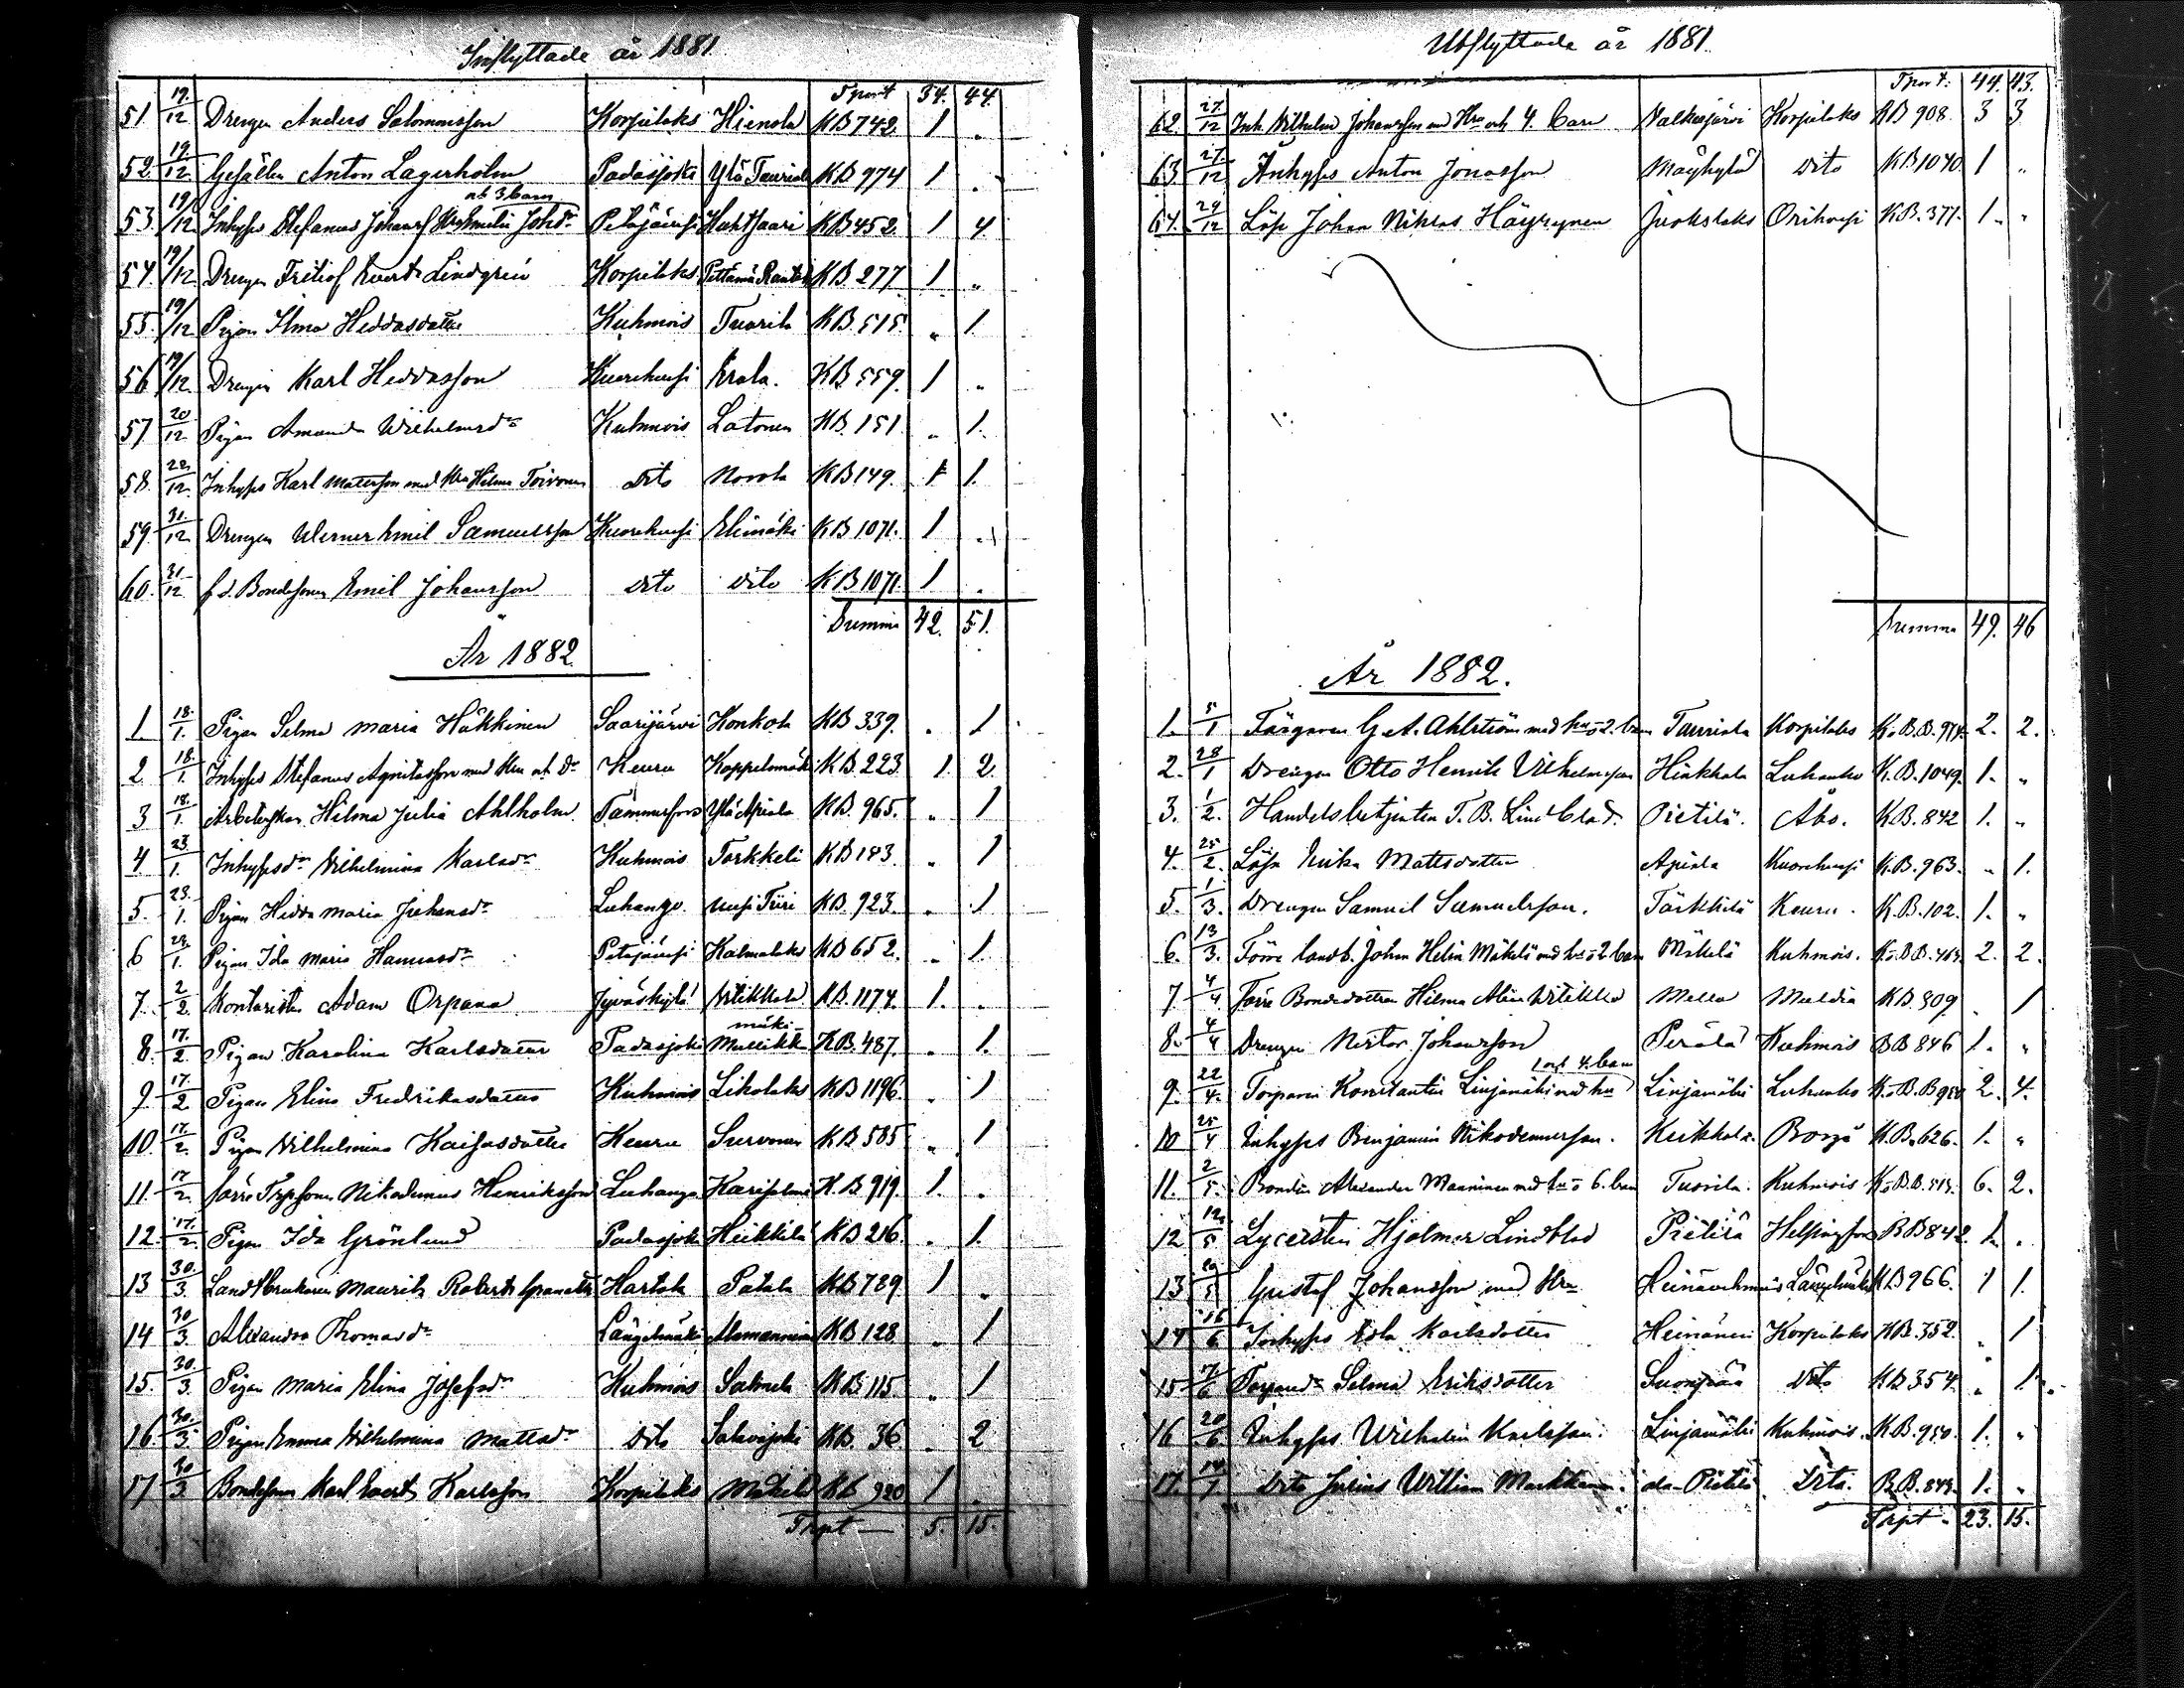 Inflyttade år 1881
Tport 34. 44.
51. 19/12 Drengen Anders Salomonsson Korpilaks Hienola KB 742. 1 „
52. 19/12 Gesällen Anton Lagerholm Padasjoki Ylä Tauriala KB 974 1 „
och 3 barn
53. 19/12 Inhyses Stefanus Johansson Hru Emilia Johsdr Petäjävesi Huhtsaari KB 452. 1 4.
54. 19/12 Drengen Fritiof Evert Lindgren Korpilaks KB. 277 1 „
55. 19/12 Pigan Ilma Heddasdotter Kuhmois Tuorila KB. 515. „ 1.
56 19/12 Drengen Karl Heddasson Kuorehvesi Erala. KB 559. 1 „
57 20/12 Pigan Amanda Wilhelmsdr Kuhmois Latonen KB. 151 „ 1.
58. 22/12 Inhyses Karl Mattsson med Hru Hilma Toivonen dito KB 149. 1 1.
59. 31/12 Drengen Werner Emil Samuelsson Kuorehvesi Elimäki KB 1071. 1 „
60. 31/12 f.d. Bondesonen Emil Johansson dito dito KB 1071. 1 „
Summa 42. 51.
År 1882
1 18/1. Pigan Selma Maria Häkkinen Saarijärvi Konkola KB 339. „ 1
2. 18/1. Inhyses Stefanus med Hru och dr Keuru Koppelomäki KB. 223 1. 2.
3 18/1. Arbeterskan Hilma Julia Ahlholm Tammerfors Ylä Apiala KB. 965. „ 1
4 23/1. Inhysesdr Wilhelmina Karlsdr Kuhmois Torkkeli KB 143. „ 1
5. 23/1. Pigan Hedda Maria Juhansdr Luhango Uusi Tiiri KB. 923. „ 1
6 23/1. Pigan Ida Maria Petäjävesi Kalmalaks KB 652. „ 1.
7. 2/2. Kontoristen Adam Orpana Jyväskylä Witikkala KB. 1174. 1. „
mäki-
8. 17/2. Pigan Karolina Karlsdotter Padasjoki Mullikka KB. 487. „ 1.
9. 17/2 Pigan Elina Fredriksdotter Kuhmois Likolaks KB 1196. „ 1
10. 17/2. Pigan Wilhelmina Kaisasdotter Keuru Survonen KB 585 „ 1
11. 17/2. förre Torpsonen Nikodemus Henriksson Luhango Karisalmi KB 919. 1. „
12. 17/2. Pigan Ida Grönlund Padasjoki Heikkilä KB 216. „ 1.
13 30/3. Landtbrukaren Maurits Robert Hartola Patala KB 789 1 „
14 30/3. Alexandra Thomasdr Längelmäki KB 128 „ 1
15. 30/3. Pigan Maria Elina Josefsdr Kuhmois KB. 115. „ 1
16. 30/3. Pigan Emma Wilhelmina Mattsdr dito KB. 36 „ 2
17 30/3 Bondesonen Karl Evert Karlsson Korpilaks Mäkilä KB 920 1 „
Trpt — 5. 15.
Utflyttade år 1881.
Tport. 44. 43.
62. 27/12 Inh. Wilhelm Johansson med Hru och 4. barn Valkeajärvi Korpilaks KB 908. 3 3
63. 27/12 Inhyses Anton Jonasson Mäyhylä dito KB. 1040. 1 „
64. 29/12 Lösk Johan Niklas Häyrynen Juokslaks Orihvesi KB. 377. 1. „
Summa 49. 46
År 1882.
1. 5/1 Färgaren G. A. Ahlström med hu o 2. barn Tauriala Korpilaks K.o.B.B. 974. 2. 2.
2. 28/1 Drengen Otto Henrik Vilhelmsson Hinkkala Luhanko K.B. 1049. 1. „
3. 1/2. Handelsbetjenten T. B. Lindblad. Pietilä. Åbo. KB. 842 1. „
4. 25/2. Lösk Erika Mattsdotter Apiala Kuorehvesi K.B. 963. „ 1.
5. 1/3. Drengen Samuel Samuelsson. Tärkkilä Keuru. K.B. 102. 1. „
6. 13/3. Förre landb. Johan Helin Mäkelä med hu o 2. barn Mäkelä Kuhmois. K.o.B.B. 2. 2.
7. 4/4 Förre Bondedottren Hilma Alina Witikka Muldia KB. 309 „ 1
8. 4/4 Drengen Nestor Johansson Perälä Kuhmois BB 846 1. „
1 och 4. barn
9. 22/4. Torparen Konstantin Linjamäki med hu Linjamäki Luhanko K.o.B.B 950 2. 4.
10 25/4 Inhyses Benjamin Nikodemusson. Keikkala. Borgå K.B. 626. 1. „
11. 2/5. Bonden Alexander Manninen med hu o 6. barn Tuorila. Kuhmois K.o.B.B. 515. 6. 2.
12 12/5 Lyceisten Hjalmar Lindblad Pietilä Helsingfors BB 842 1. „
13 29/5 Gustaf Johansson med Hru Längelmäki KB 966. 1 1.
14 16/6 Inhyses Karlsdotter Heinänen Korpilaks KB. 352. „ 1
15 17/6 Torparedr Selma Eriksdotter Suonpää dito KB 354. „ 1.
16 20/6. Inhyses Wilhelm Karlsson. Linjamäki Kuhmois. KB. 950. 1. „
17. 14/7 dito Julius William Markkanen. ala-Pietilä dito. BB. 843. 1. „
Trpt - 23. 15.